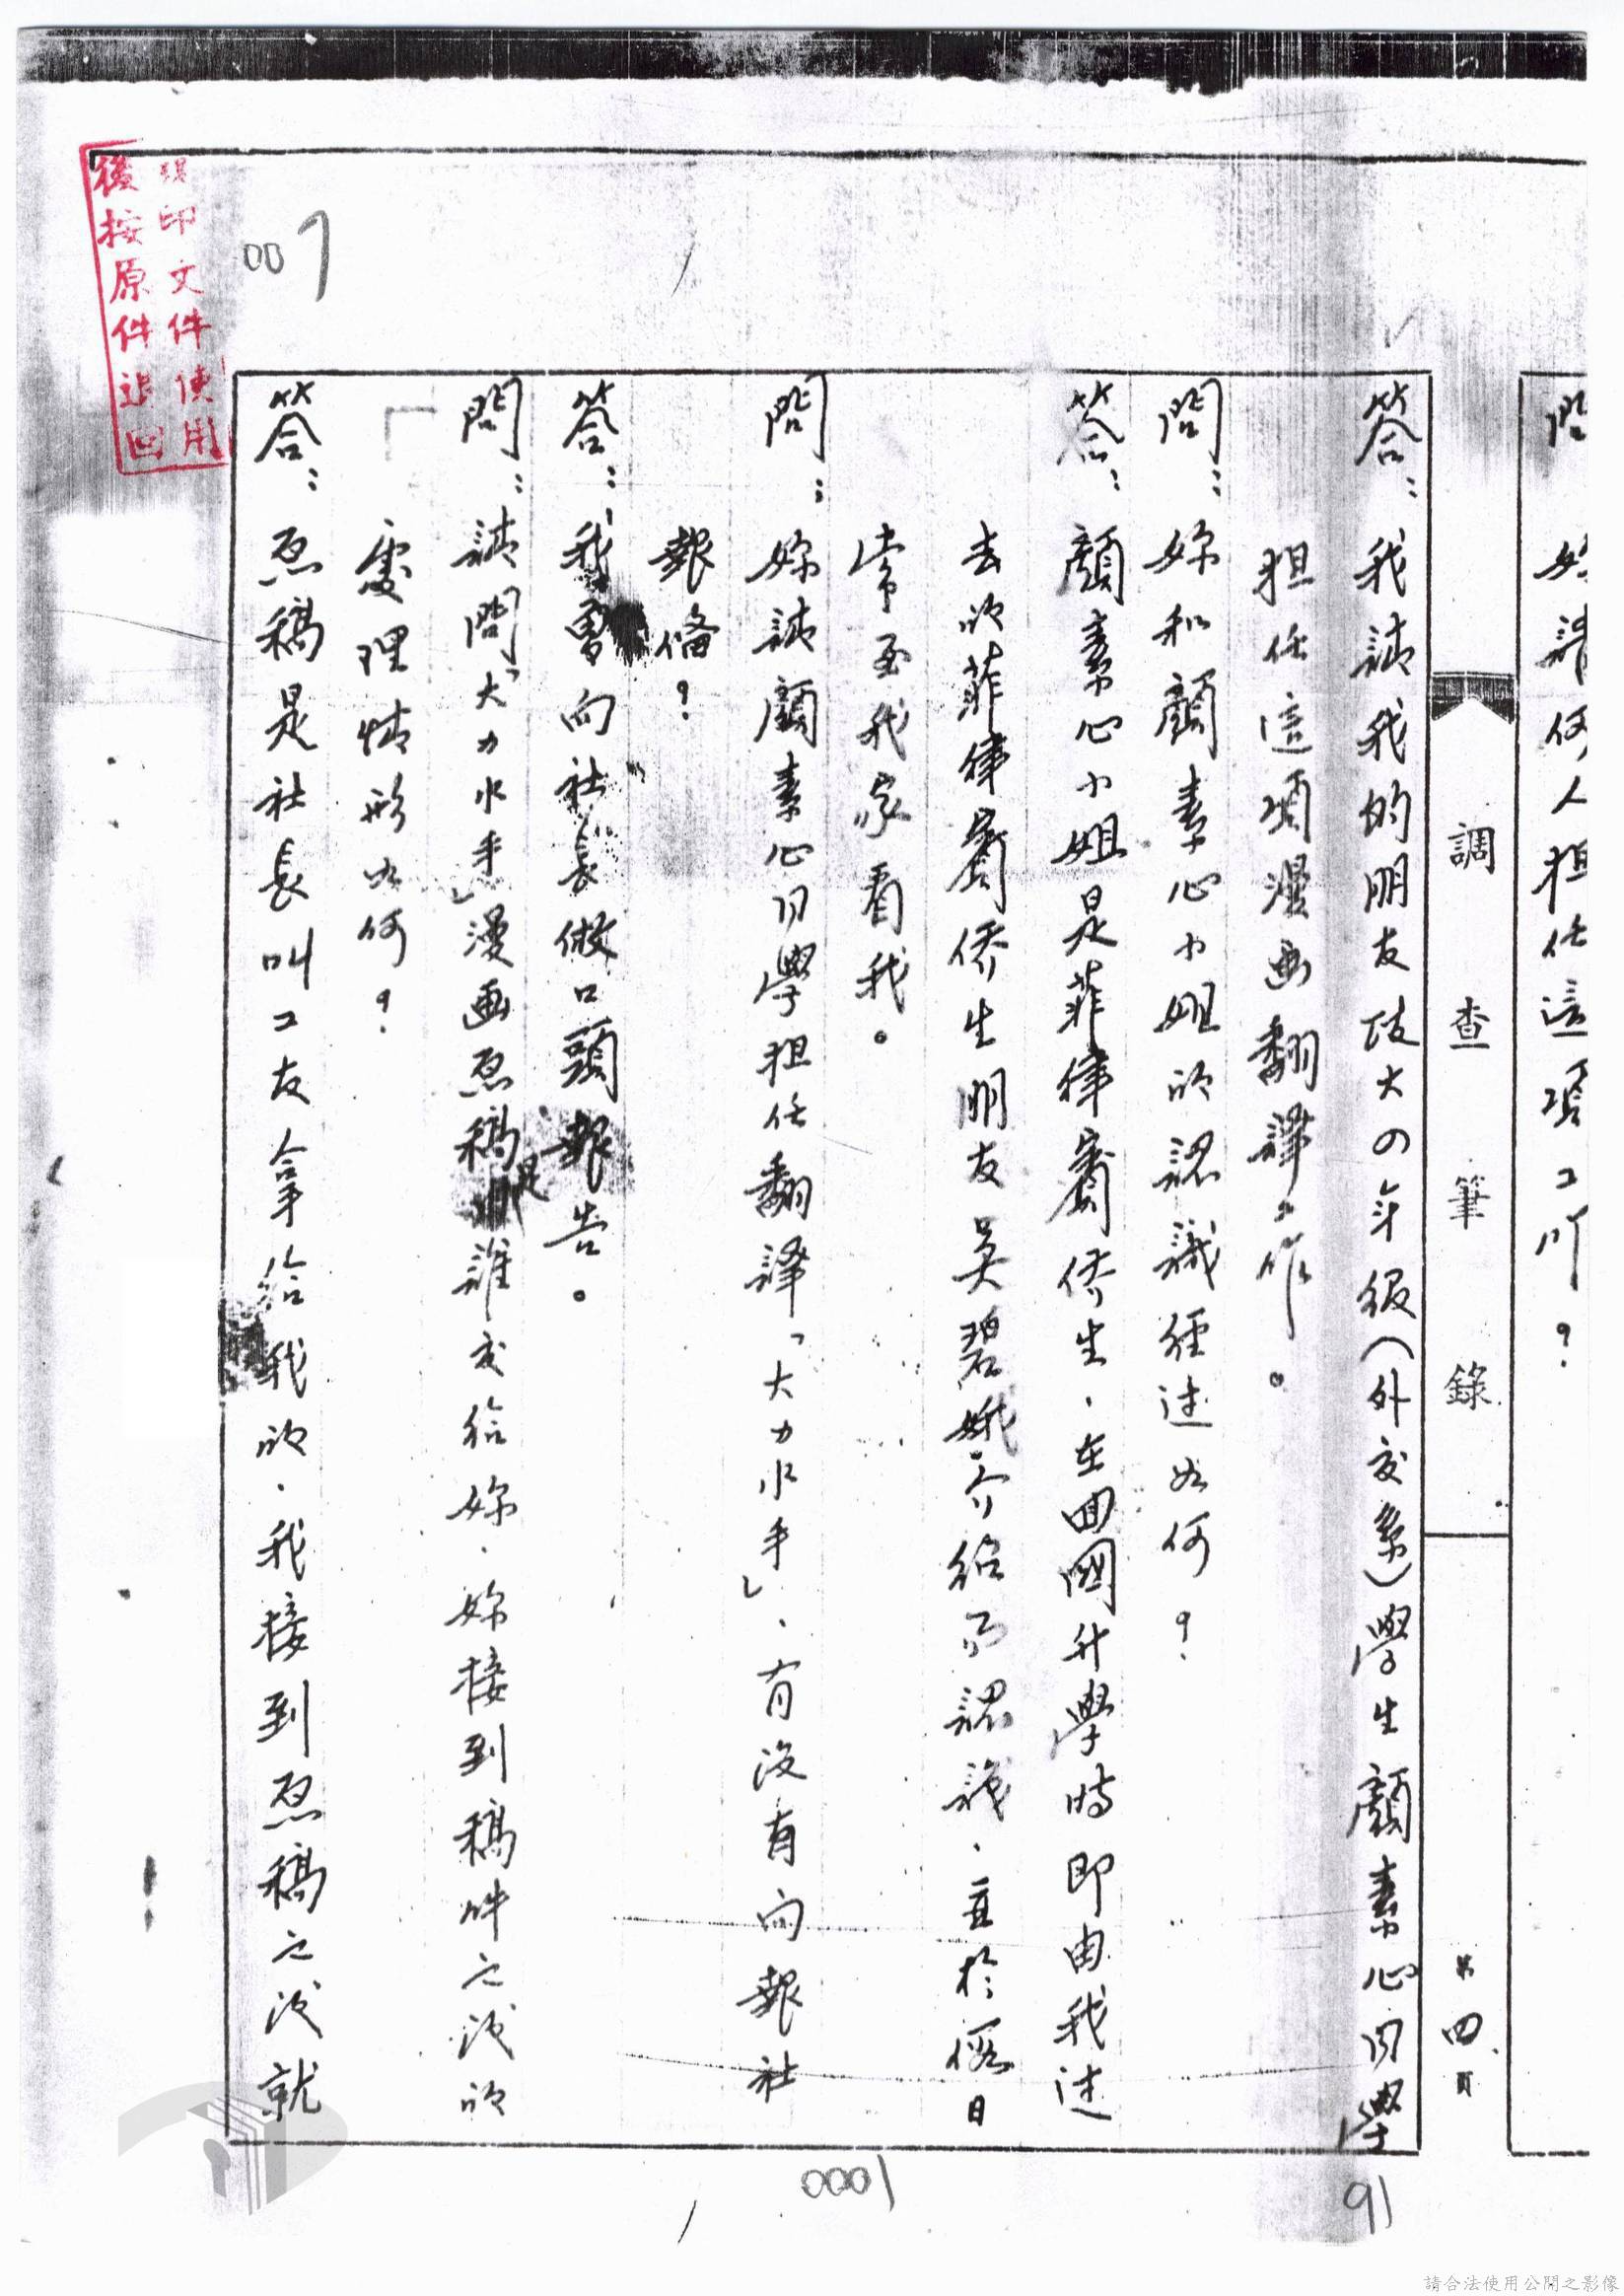 問 妳請何人担任這項工作?
調查筆錄
第四頁
答:我請我的朋友政大四年級(外交系)學生顏素心同學
担任這項漫画翻譯工作。
問:妳和顏素心小姐的認識經过如何?
答:顏素心小姐是菲律賓僑生,在回國升學時即由我过
去的菲律賓僑生朋友吳碧娥介紹而認識,並於假日
常至我家看我。
問:妳請顏素心同學担任翻譯「大力水手」,有沒有向報社
報備?
答:我曾向社長做口頭報告。
問:請問「大力水手」漫画原稿是誰交給妳,妳接到稿件之後的
處理情形如何?
答:原稿是社長叫工友拿給我的,我接到原稿之後就
印文件使用
後按原件退回
007
0001
91
請合法使用公開之影像